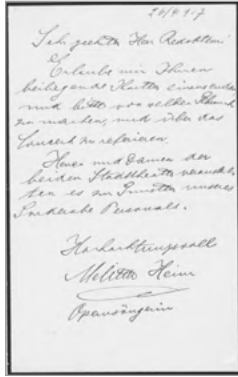 20/4 917
Sehr geehrter Herr Redakteur!
Erlaube mir Ihnen
beiliegende Karten einzusenden
und bitte von selben Gebrauch
zu machen, und über das
Concert zu referieren.
Herren und Damen der
beiden Stadttheater veranstal-
ten es zu Gunsten unseres
Personals.
Hochachtungsvoll
Melitta Heim
Opernsängerin